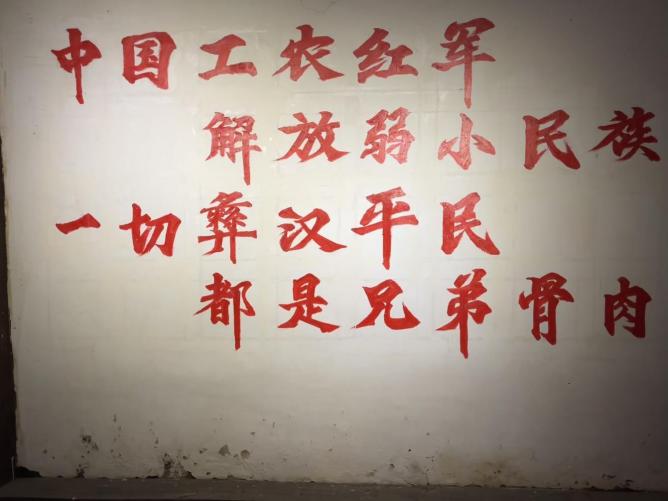 中国工农红军
解放弱小民族
一切彝汉平民
都是兄弟骨肉